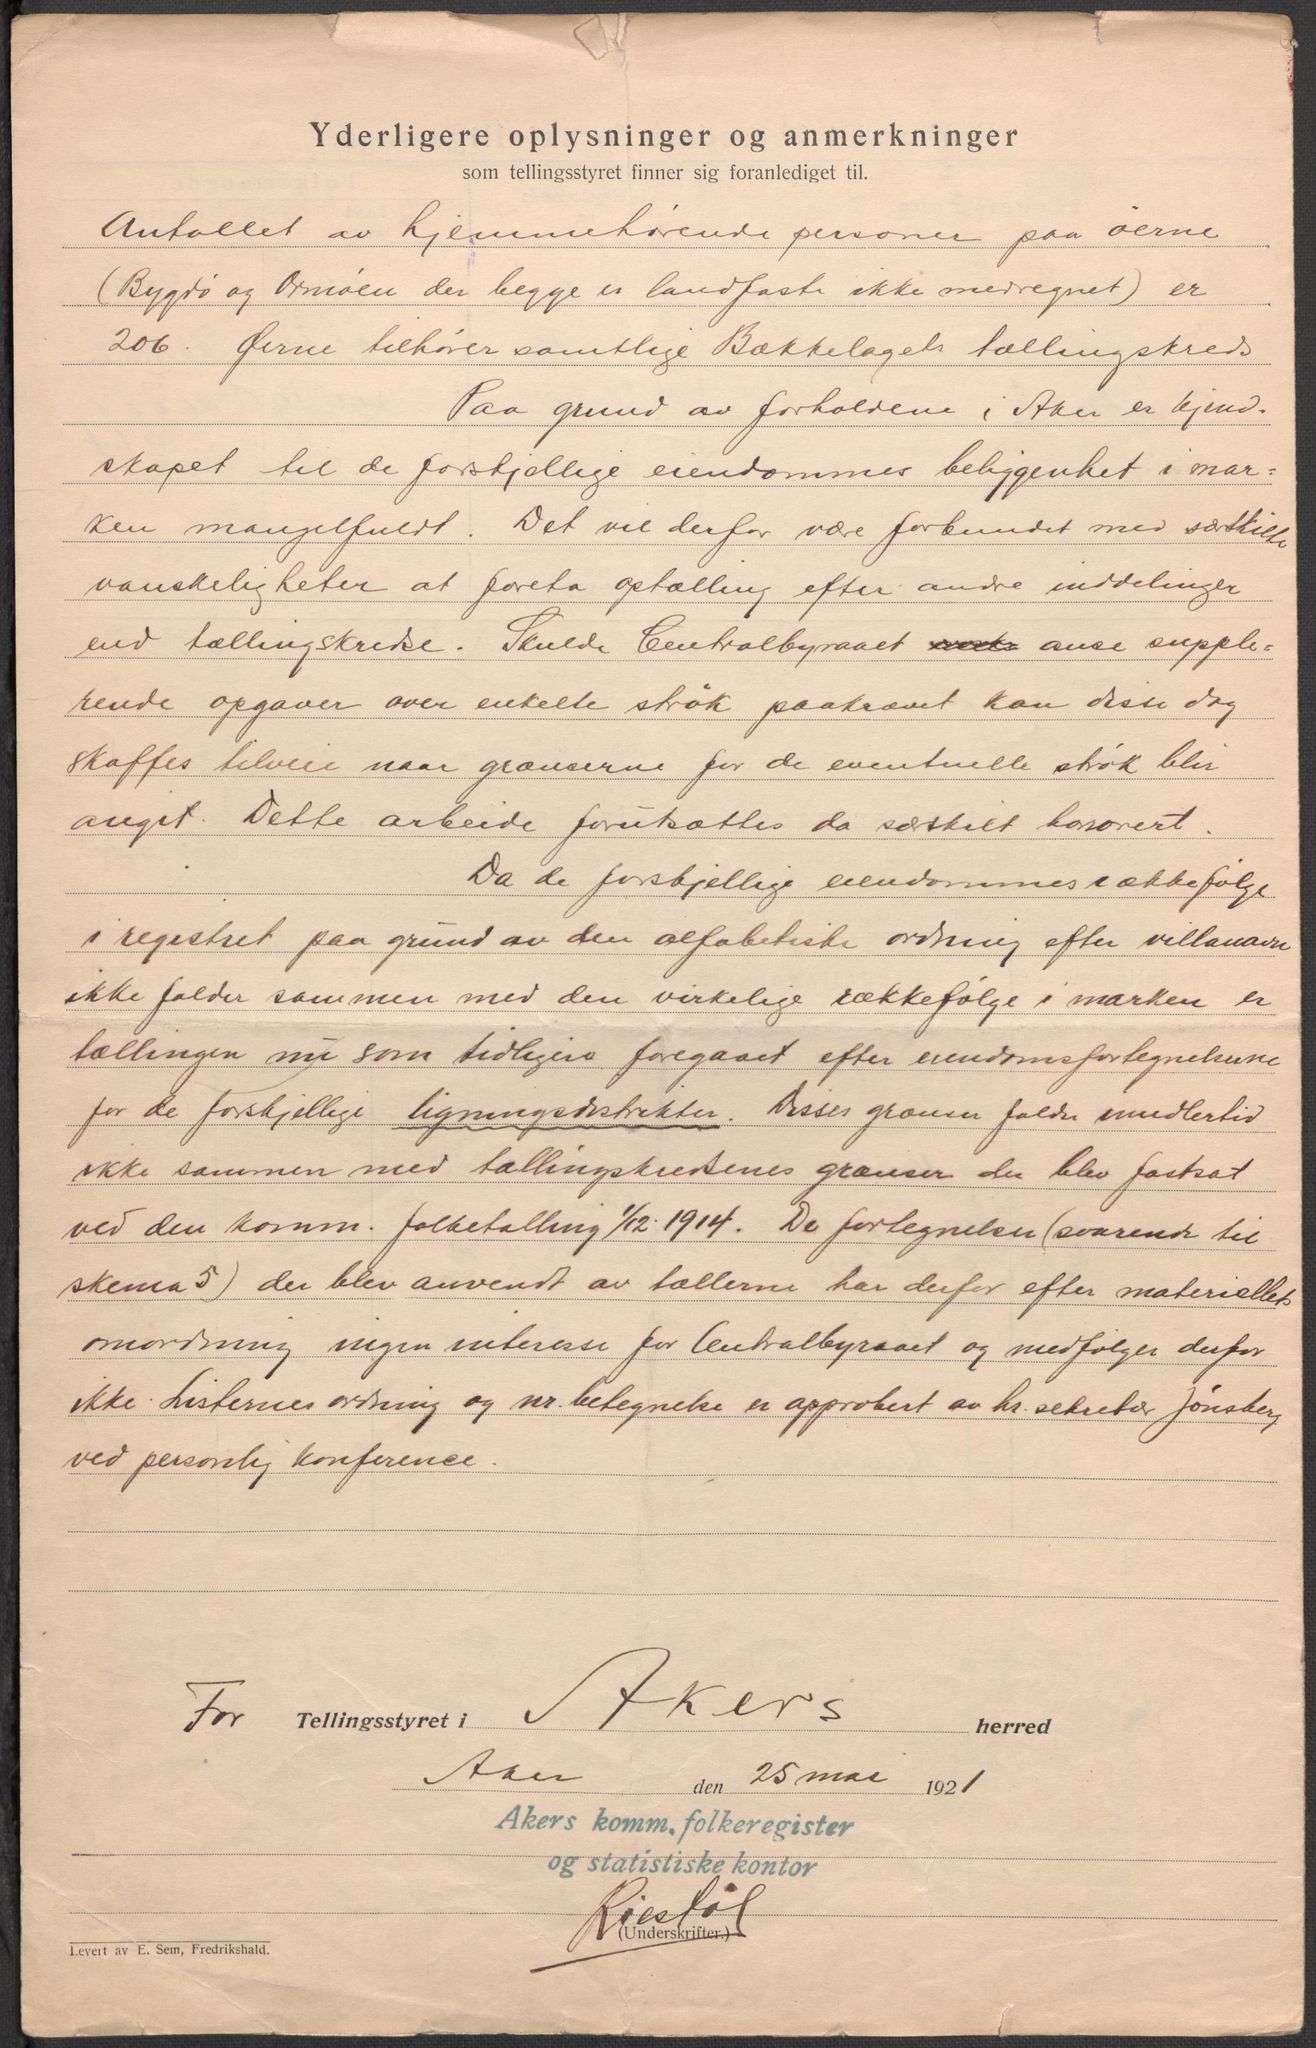 Yderligere oplysninger og anmerkninger
som tellingsstyret finner sig foranlediget til.
Antallet av hjemmehørende personer paa öerne
(Bygdö og Ormöen der begge er landfaste ikke medregnet) er
206. Øerne tilhører samtlige Bækkelagets tællingskreds
Paa grund av forholdene i Aker er kjend-
skapet til de forskjellige eiendommes beliggenhet i mar=
ken mangelfuldt. Det vil derfor være forbundet med særskilte
vanskeligheter at foreta optælling efter andre inddelinger
end tællingskredse. Skulde Centralbyraaet anse supple=
rende opgaver over enkelte strök paakrævet kan disse dog
skaffes tilveie naar grænserne for de eventuelle strök blir
angit. Dette arbeide forutsættes da særskilt honorert.
Da de forskjellige eiendommes rækkefølge
i registret paa grund av den alfabetiske ordning efter villanavn
ikke falder sammen med den virkelige rækkefölge i marken er
tællingen nu som tidligere foregaaet efter eiendomsfortegnelserne
for de forskjellige ligningsdistrikter. Disses grænser falder imidlertid
ikke sammen med tællingskredsenes grænser der blev fastsat
ved den komm. folketælling 1/12 1914. De fortegnelser (svarende til
skema 5) der blev anvendt av tællerne har derfor efter materiellets
omordning ingen interesse for Centralbyraaet og medfølger derfor
ikke. Listernes ordning og nr. betegnelse er approbert av hr. sekretær Jönsberg
ved personlig konference.
For Tellingsstyret i Akers herred
Aker den 25 mai 1921
Akers komm. folkeregister
og statistiske kontor
(Underskrifter.)
Levert av E. Sem, Fredrikshald.